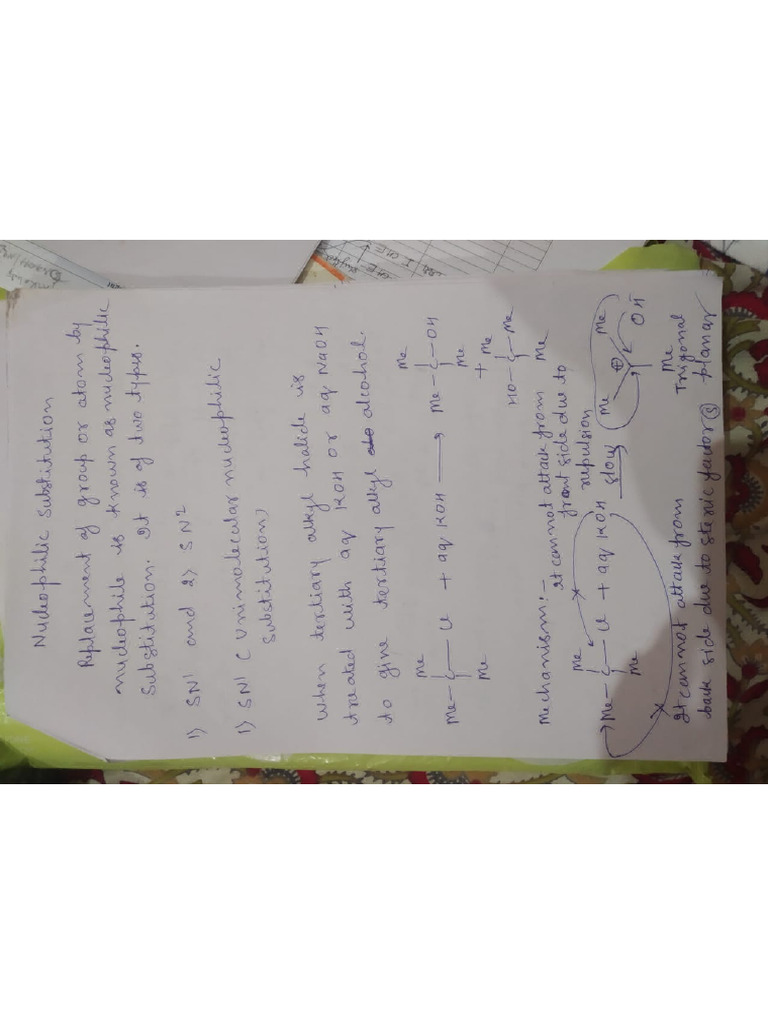 Nucleophilic Substitution
Replacement of group or atom by
nucleophile is known as nucleophilic
substitution. It is of two types.
1) SN1 and 2) SN2
1) SN1 (Unimolecular nucleophilic
substitution)
When tertiary alkyl halide is
treated with aq KOH or aq NaOH
to give tertiary alkyl alcohol.
Me Me
Me—C—Cl + aq KOH ⟶ Me—C—OH
Me Me
+
Me
HO—C—Me
Me
Mechanism:–
It cannot attack from
front side due to
repulsion
Me
Me—C—Cl + aq KOH slow Me ⊕ Me
Me OH
Me
Trigonal
planar
It cannot attack from
back side due to steric factor(s)